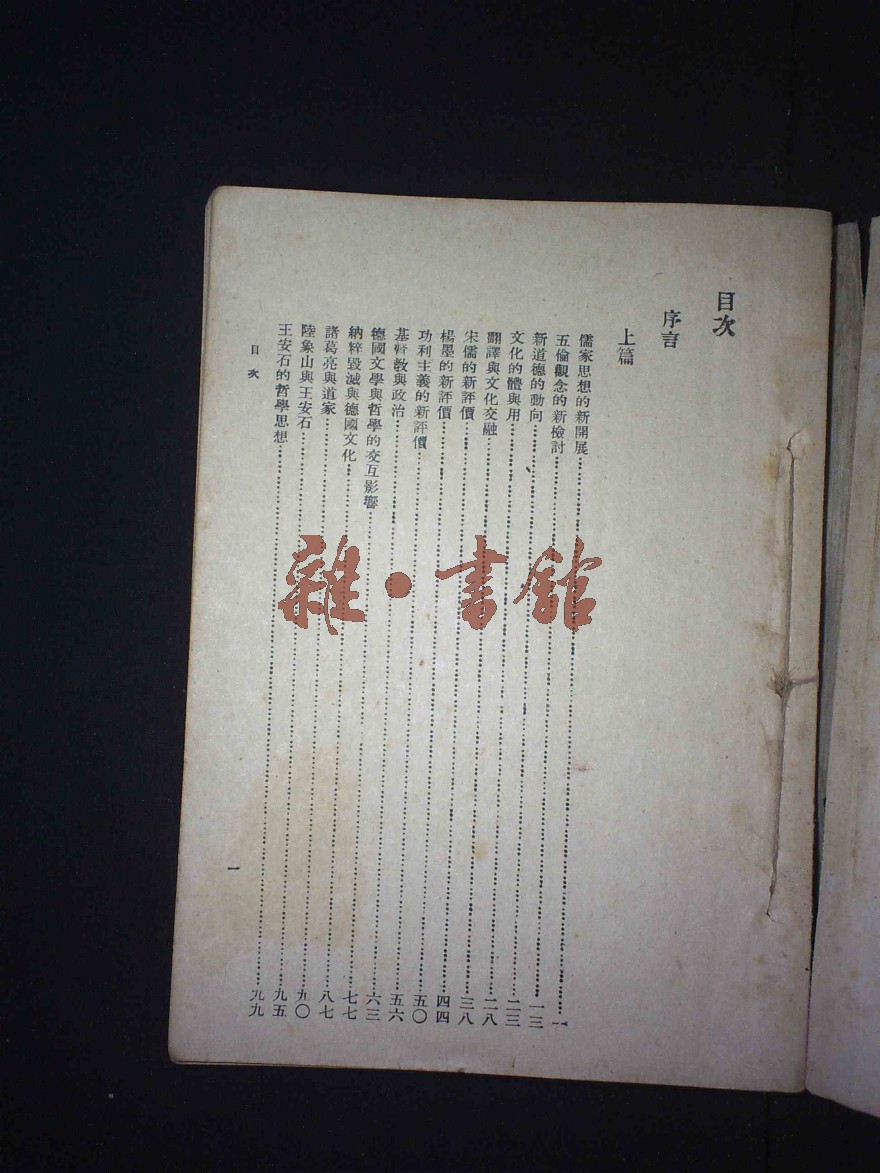 目次
序言
上篇
儒家思想的新開展……一
五倫觀念的新檢討……一三
新道德的動向……二三
文化的體與用……二八
翻譯與文化交融……三八
宋儒的新評價……四四
楊墨的新評價……五〇
功利主義的新評價……五六
基督教與政治……六三
德國文學與哲學的交互影響……七七
納粹毀滅與德國文化……八七
諸葛亮與道家……九〇
陸象山與王安石……九五
王安石的哲學思想……九九
目次
一
雜·書館